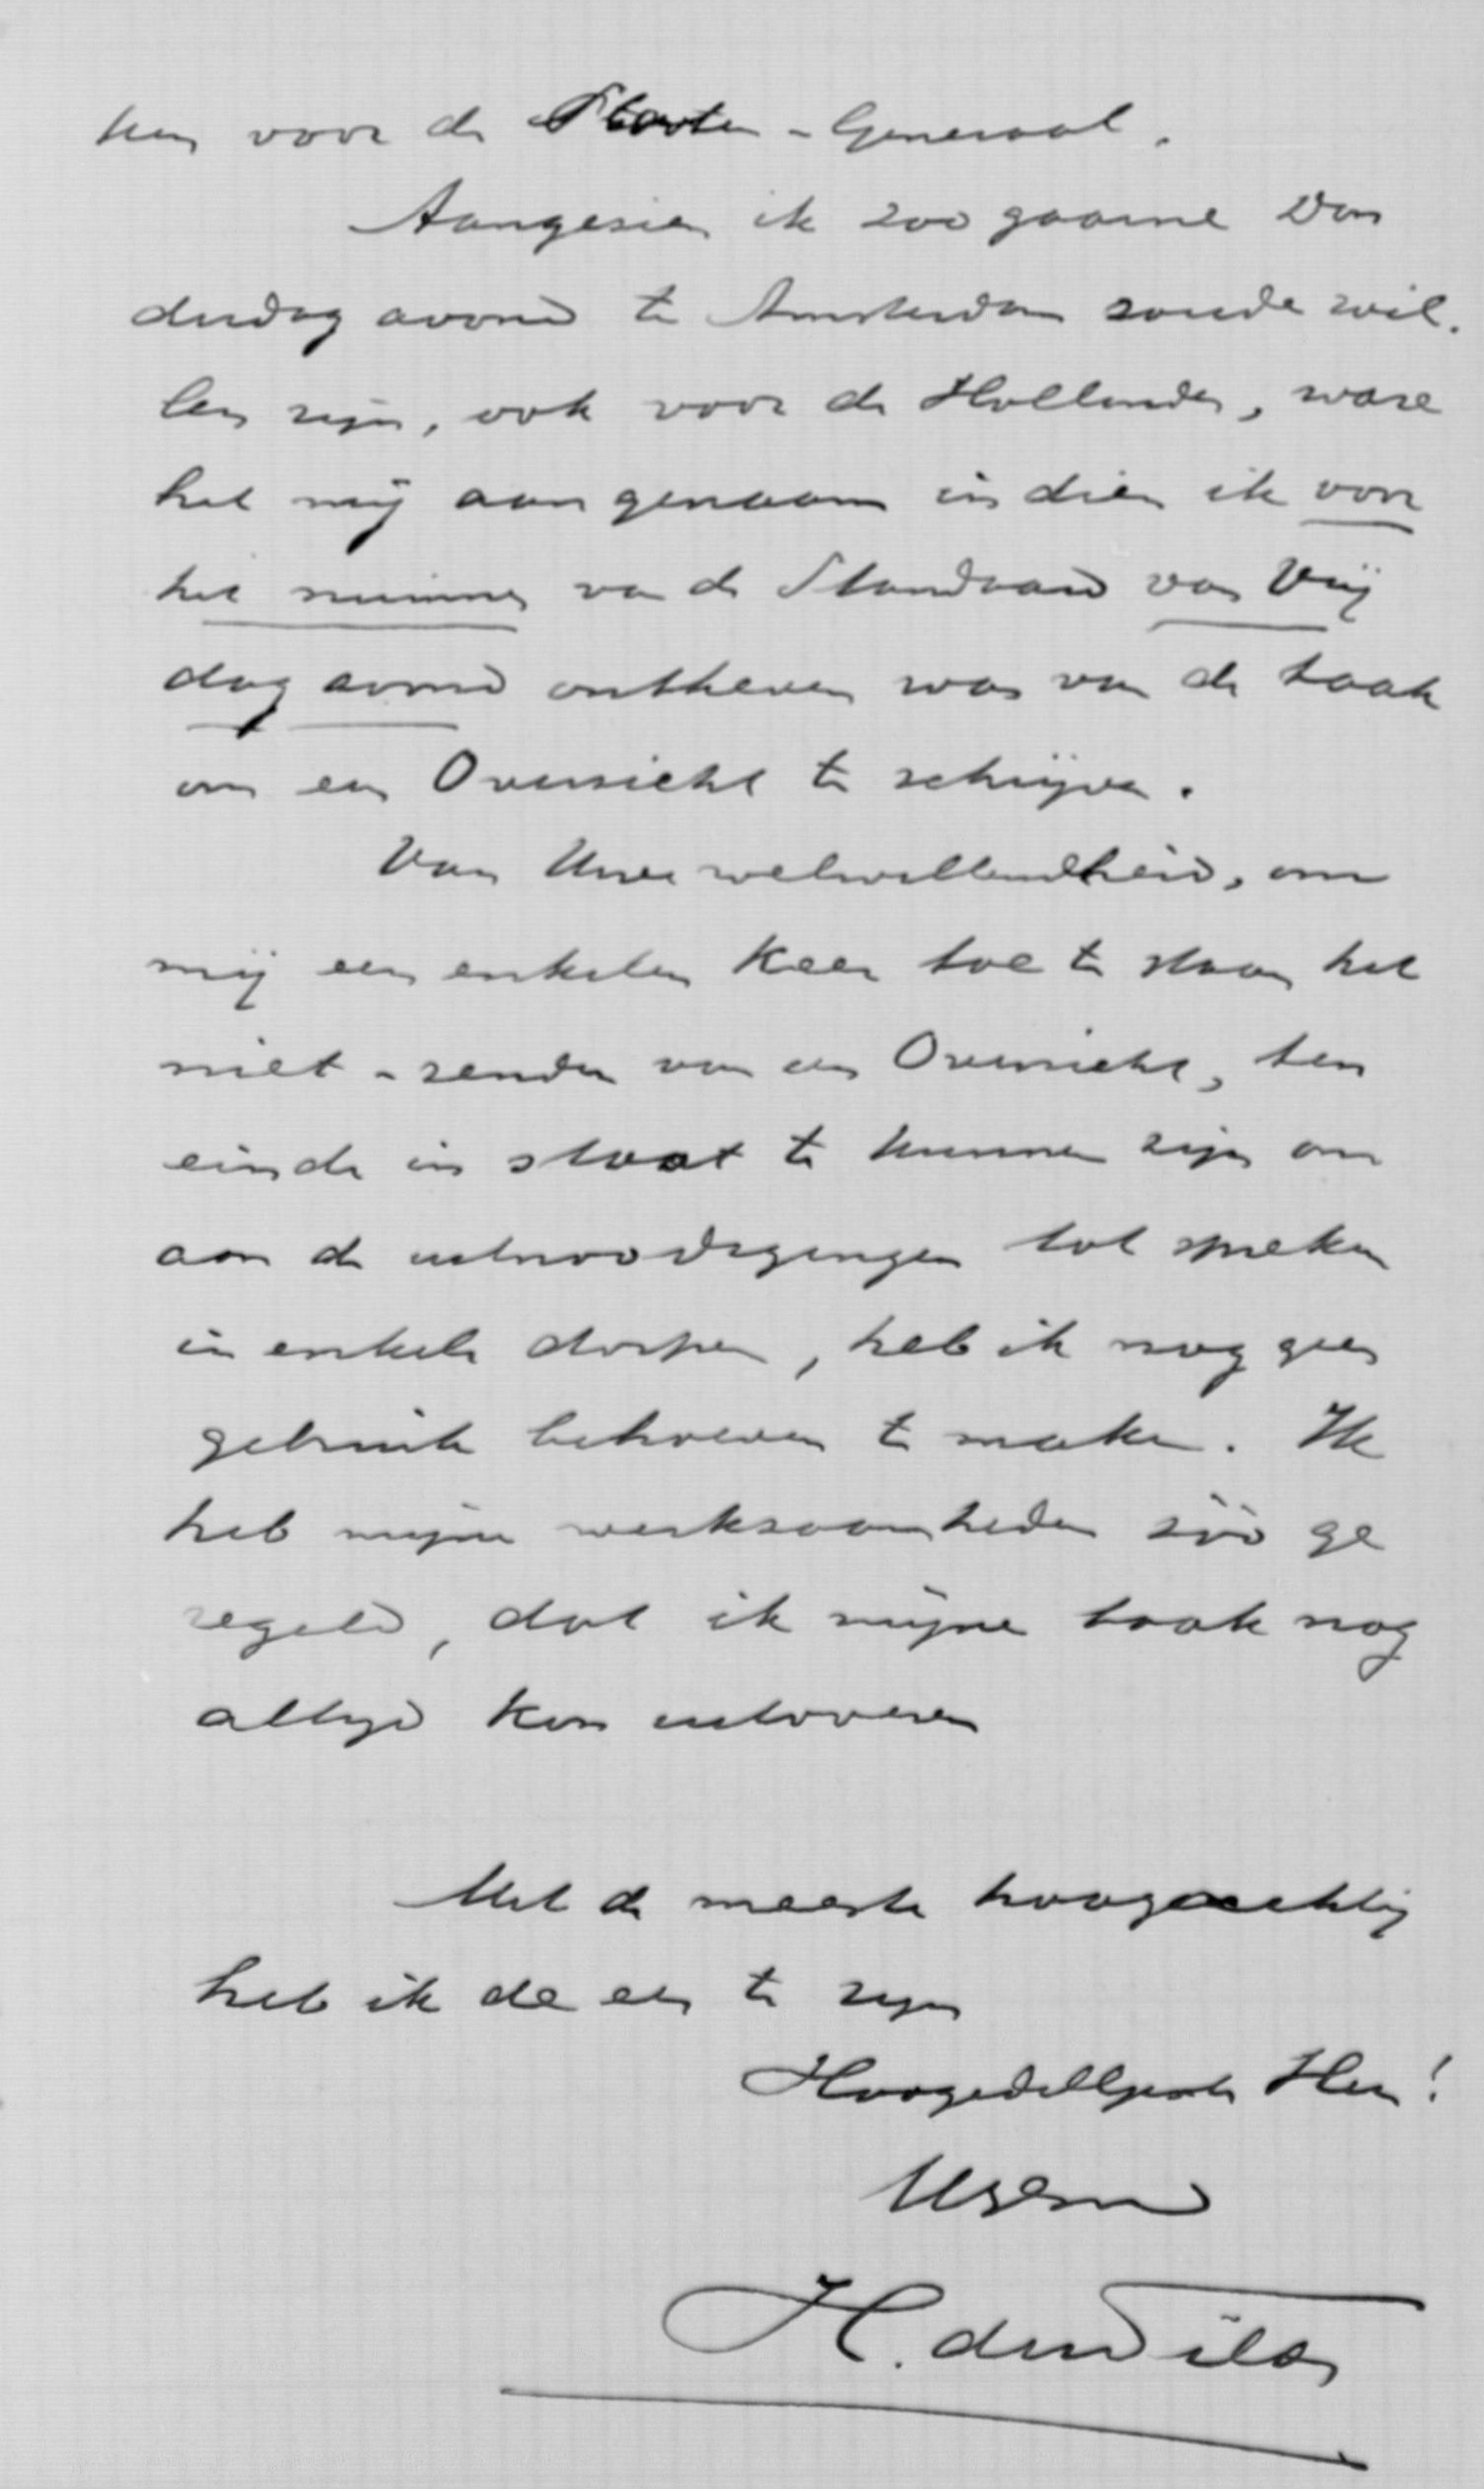 ken voor de Staten-Generaal.
Aangezien ik zoo gaarne Don
derdag avond te Amsterdam zoude wil.
len zijn, ook voor de Hollander, ware
het mij aangenaam indien ik voor
het nummer van de Standaard van Vrij
dag avond ontheven was van de taak
om een Overzicht te schrijven.
Van Uwe welwillendheid, om
mij een enkelen keer toe te staan het
niet-zenden van een Overzicht, ten
einde in staat te kunnen zijn om
aan de uitnoodigingen tot spreken
in enkele dorpen, heb ik nog geen
gebruik behoeven te maken. Ik
heb mijne werkzaamheden zóó ge
regeld, dat ik mijne taak nog
altijd kon uitvoeren
Met de meeste hoogachting
heb ik de eer te zijn
Hoogedelgestr Heer!
UwEdw
H. den Tilder